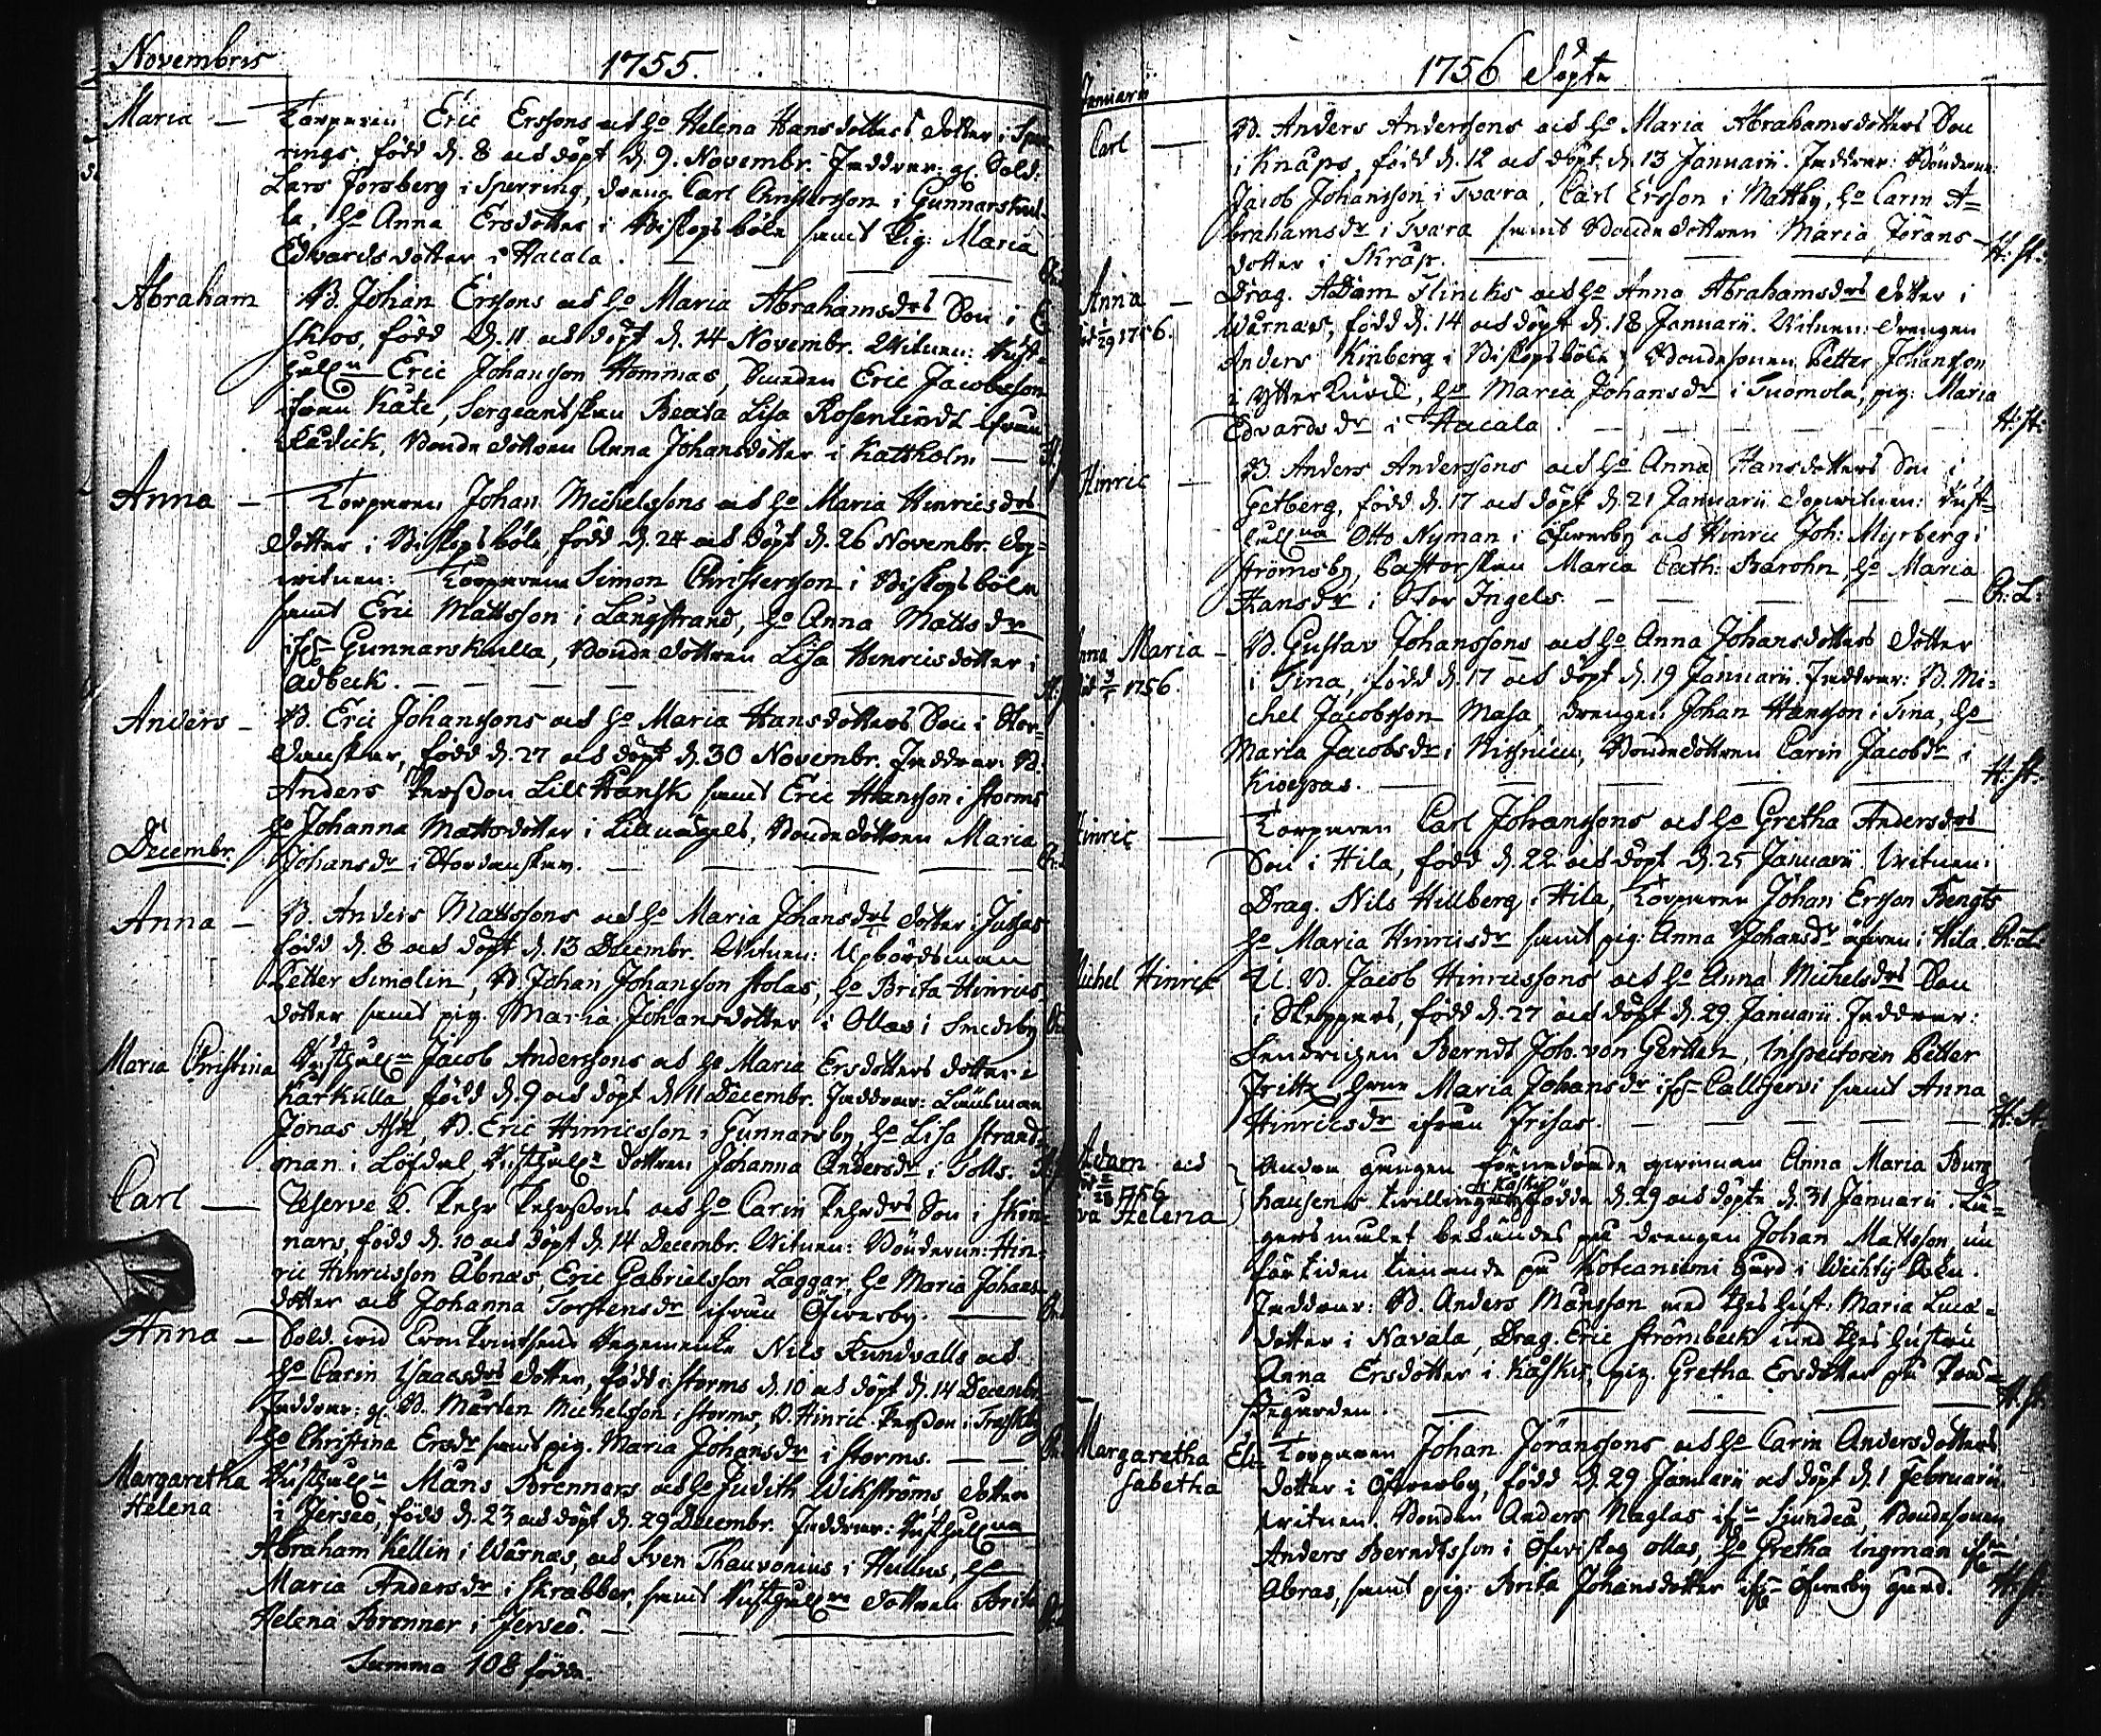 Novembris
1755.
Maria — Torparen Eric Erssons och Ho Helena Hansdotters dotter i Sper-
rings, född d. 8 och döpt d. 9. Novembr. Faddrar: gl. Sold:
Lars Forsberg i Sperring, dreng Carl Christersson i Gunnarskul-
la, Ho Anna Ersdotter i Biskopsböle samt Pig: Maria
Edvardsdotter i Hacala.
Abraham B. Johan Erssons och Ho Maria Abrahamsdrs Son i
Sklos, född d. 11 och döpt d. 14 Novembr. Witnen:
Eric Johansson Hommas, Bonden Eric Jacobsson
ifrån Käte, Sergeantskan Beata Lisa Rosenlindt ifrån
Bonde dottren Anna Johansdotter i Kattholm —
Anna — Torparen Johan Michelssons och Ho Maria Hinricsdrs
dotter i Biskopsböle född d. 24 och döpt d. 26 Novembr. dop-
witnen: Torparena Simon Christersson i Biskopsböle
samt Eric Mattsson i Långstrand, Ho Anna Mattsdr
Gunnarskulla, Bonde dottren Lisa Hinricsdotter i
adbeck.
Anders — B. Eric Johanssons och Ho Maria Hansdotters Son i Stor-
född d. 27 och döpt d. 30 Novembr. Faddrar: B.
Anders Persson Lill Kansk samt Eric Hansson i Storms
Ho Johanna Mattsdotter i Bonde dottren Maria
Decembr. Johansdr i
Anna — B. Anders Mattssons och Ho Maria Johansdrs dotter i
född d. 8 och döpt d. 13 Decembr. Witnen: Upbördsman
Petter Simolin, B. Johan Johansson Ho Brita Hinrics-
dotter samt pig. Maria Johansdotter i Ollas i Smedsby
Maria Christina Jacob Anderssons och Ho Maria Ersdotters dotter i
Karkulla född d. 9 och döpt d. 11 Decembr. Faddrar: Länsman
Jonas Ask, B. Eric Hinricsson i Gunnarsby, Ho Lisa Strand-
man i Löfdal, dottren Johanna Andersdr i Tolls.
Carl — Reserve K. Pehr Pehrssons och Ho Carin Pehrdrs Son i Skin-
nars, född d. 10 och döpt d. 14 Decembr. Witnen: Bönderne: Hin-
ric Hinricsson Abnas, Eric Gabrielsson Laggar, Ho Maria Johans-
dotter och Johanna Torstensdr ifrån Öfwerby.
Anna — Sold. wid Regemente Nils Rundvalls och
Ho Carin Isaacsdrs dotter, född i Storms d. 10 och döpt d. 14 Decembr.
Faddrar: gl. B. Mårten Michelsson i Storms, B. Hinric Persson i
Ho Christina Ersdr samt pig. Maria Johansdr i Storms.
Margaretha Måns Brenners och Ho Judith Wikströms dotter
Helena i Jerseö, född d. 23 och döpt d. 29 Decembr. Faddrar:
Abraham Kellin i Wårnäs, och Sven Thauvonius i Ho
Maria Andersdr i Skrabber, samt dottren Brita
Helena Brenner i Jerseö.
Summa 108 födde.
1756 döpte
Januarii
Carl — B. Anders Anderssons och Ho Maria Abrahamsdotters Son
i Knåps, född d. 12 och döpt d. 13 Januarii. Faddrar: Bönderne:
Jacob Johansson i Tvara, Carl Ersson i Mattby, Ho Carin A-
brahamsdr i Tvara samt Bonde dottren Maria Jörans-
dotter i Skräp. H: H:
Anna — Drag. Adam Flincks och Ho Anna Abrahamsdrs dotter i
1756. Wårnäs, född d. 14 och döpt d. 18 Januarii. Witnen: drengen
Anders Kinberg i Biskopsböle, Bondesonen Petter Johansson
i Ytter Ho Maria Johansdr i Tuomola, pig: Maria
Edvardsdr i Hacala. H: H:
Hinric — B. Anders Anderssons och Ho Anna Hansdotters Son i
Getberg, född d. 17 och döpt d. 21 Januarii dopwitnen:
Otto Nyman i Öfwerby och Hinric Joh: Myrberg i
Strömsby, Pastorskan Maria Cath: Barohn, Ho Maria
Hansdr i Stor Ingels.
Anna Maria — B. Gustav Johanssons och Ho Anna Johansdotters dotter
1756. i Tina, född d. 17 och döpt d. 19 Januarii. Faddrar: B. Mi-
chel Jacobsson Masa, drengen Johan Hansson i Tina, Ho
Maria Jacobsdr i Bondedottren Carin Jacobsdr i
H: H:
Hinric — Torparen Carl Johanssons och Ho Gretha Andersdrs
Son i Hila, född d. 22 och döpt d. 25 Januarii. Witnen:
Drag. Nils Hillberg i Hila, Torparen Johan Ersson Bengts
Ho Maria Hinricsdr samt pig: Anna Johansdr äfwen i Hila.
Michel Hinric U. B. Jacob Hinricssons och Ho Anna Michelsdrs Son
i Skeppars, född d. 27 och döpt d. 29. Januarii. Faddrar:
Fendricken Berndt Joh. von Gertten, Inspectoren Petter
Fritz, Maria Johansdr Calltjervi samt Anna
Hinricsdr ifrån Frisas. H: H:
Adam och Andra gången qwinnan Anna Maria Burg
1756 hausens twillingar i Kåskis födde d. 29 och döpte d. 31 Januarii. Lä-
Eva Helena gersmålet bekändes på drengen Johan Mattsson nu
för tiden tienande på Kotcaniemi Gård i Wichtis Sokn.
Faddrar: B. Anders Månsson med thes hust: Maria Luca-
dotter i Navala, Drag. Eric Strömbeck med thes hustru
Anna Ersdotter i Kåskis, pig. Gretha Ersdotter på
H: H:
Margaretha Eli- Torparen Johan Jöranssons och Ho Carin Andersdotters
sabetha dotter i Öfwerby, född d. 29 Januarii och döpt d. 1 Februarii.
witnen. Bonden Anders Naglas Sjundeå, Bondesonen
Anders Berndtsson i Ollas, Ho Gretha Ingman
Abras, samt pig: Brita Johansdotter Öfwerby Gård. H: H: